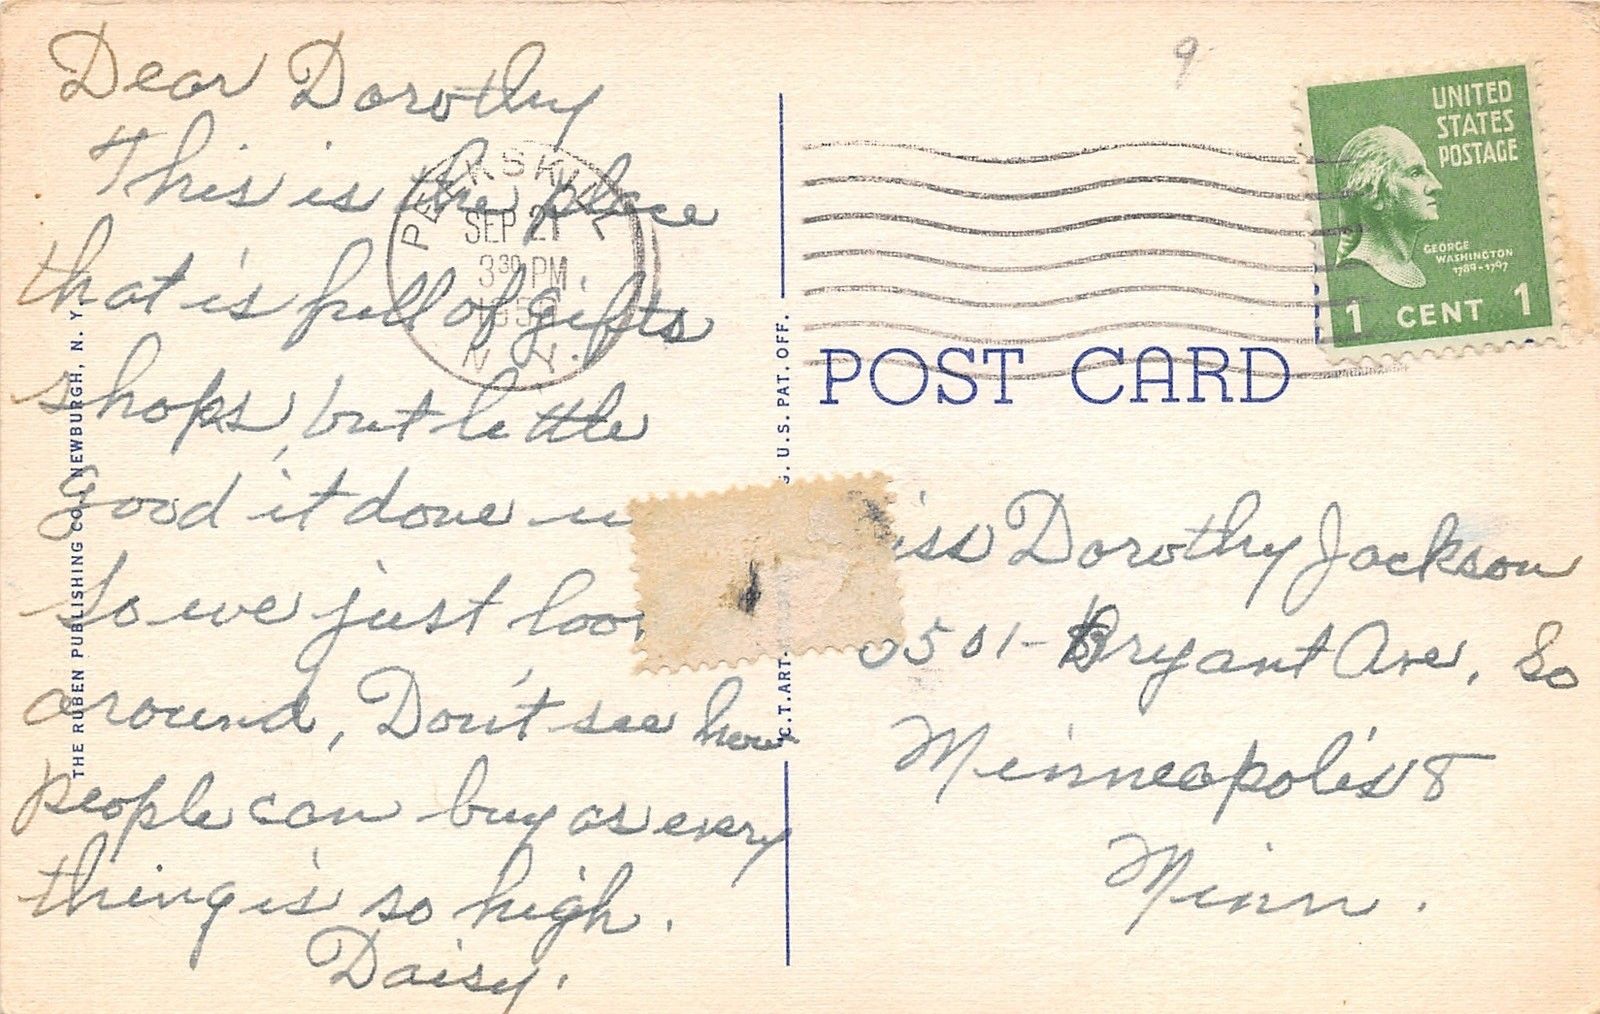 Dear Dorothy
This is the place
that is full of gifts
shops, but little
Good it done u
So we just loo
around, Don't see how
people can buy as every
thing is so high.
Daisy.
PEEKSKILL
SEP 21
3 30 PM
N. Y.
THE RUBEN PUBLISHING CO., NEWBURGH, N. Y.
C.T. ART-
G. U.S. PAT. OFF.
9
UNITED
STATES
POSTAGE
GEORGE
WASHINGTON
1789-1797
1 CENT 1
POST CARD
iss Dorothy Jackson
3501-Bryant Ave. So
Minneapolis 8
Minn.